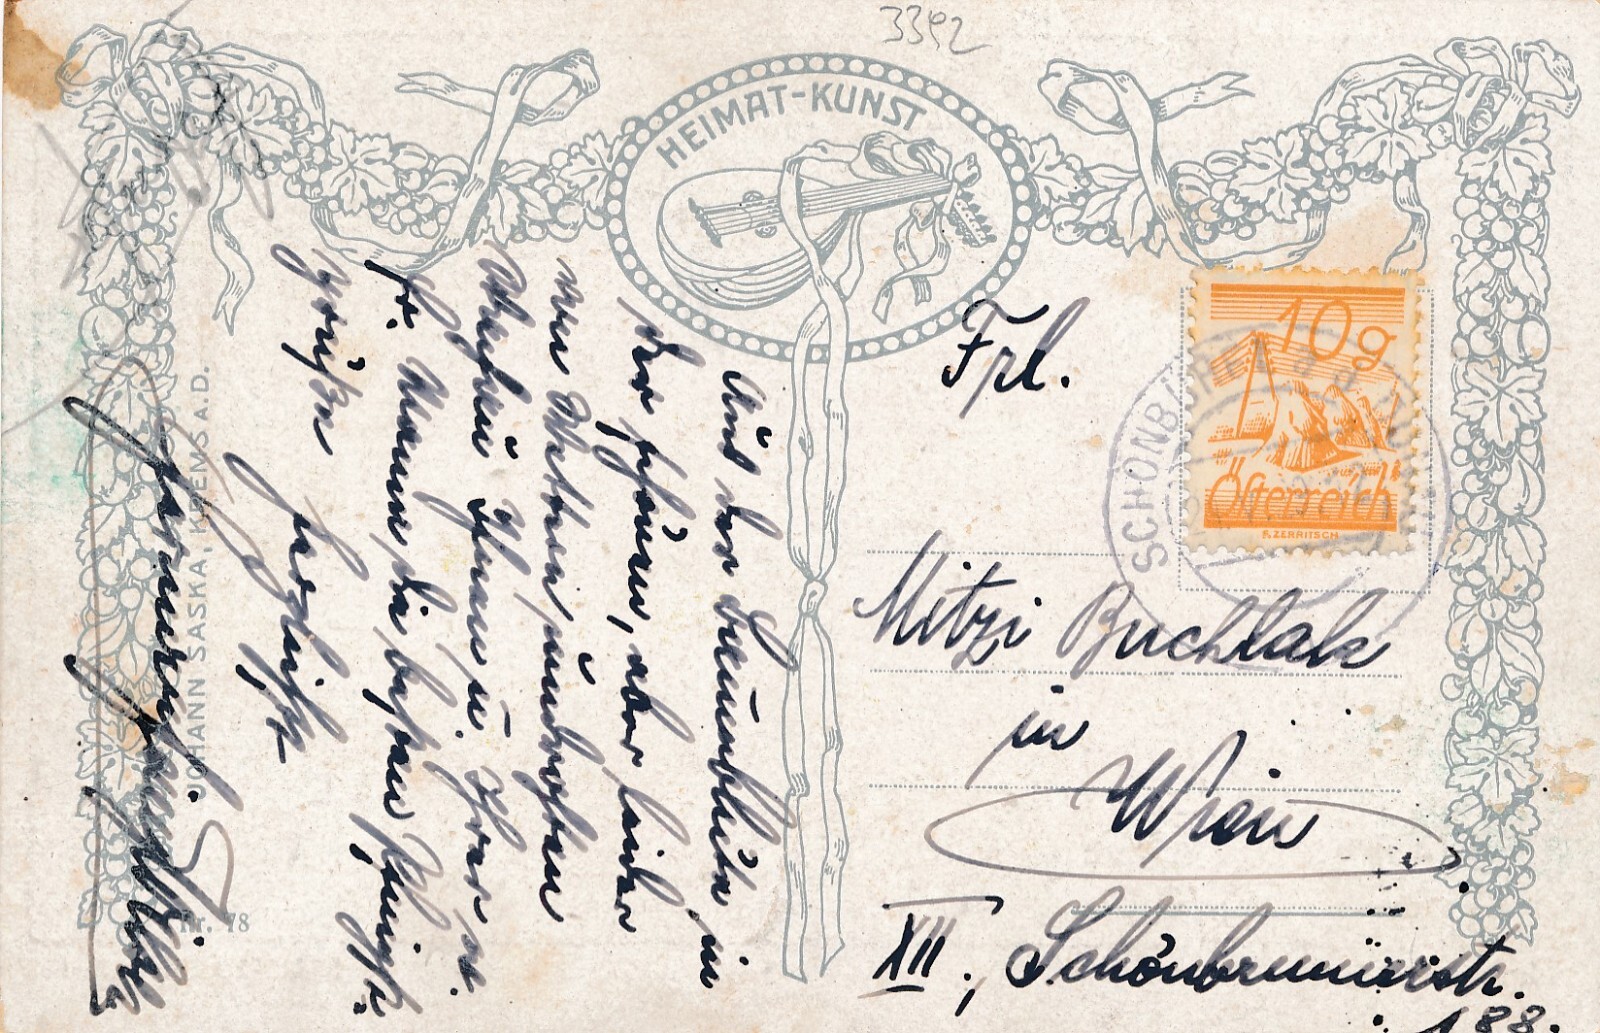 3392
HEIMAT-KUNST
Aus der Baumblüte in
der schönen, aber leider
von Wetter umdrohten
Wachau Ihnen u. Ihrer w.
Fr. Mama die besten
Grüße
herzlichst
JOHANN SASKA, KREMS A.D.
Nr. 78
10g
Österreich
F. ZERRITSCH
SCHÖNB
Frl.
Mitzi Buchlak
in
Wien
XII., Schönbrunnerstr.
188.